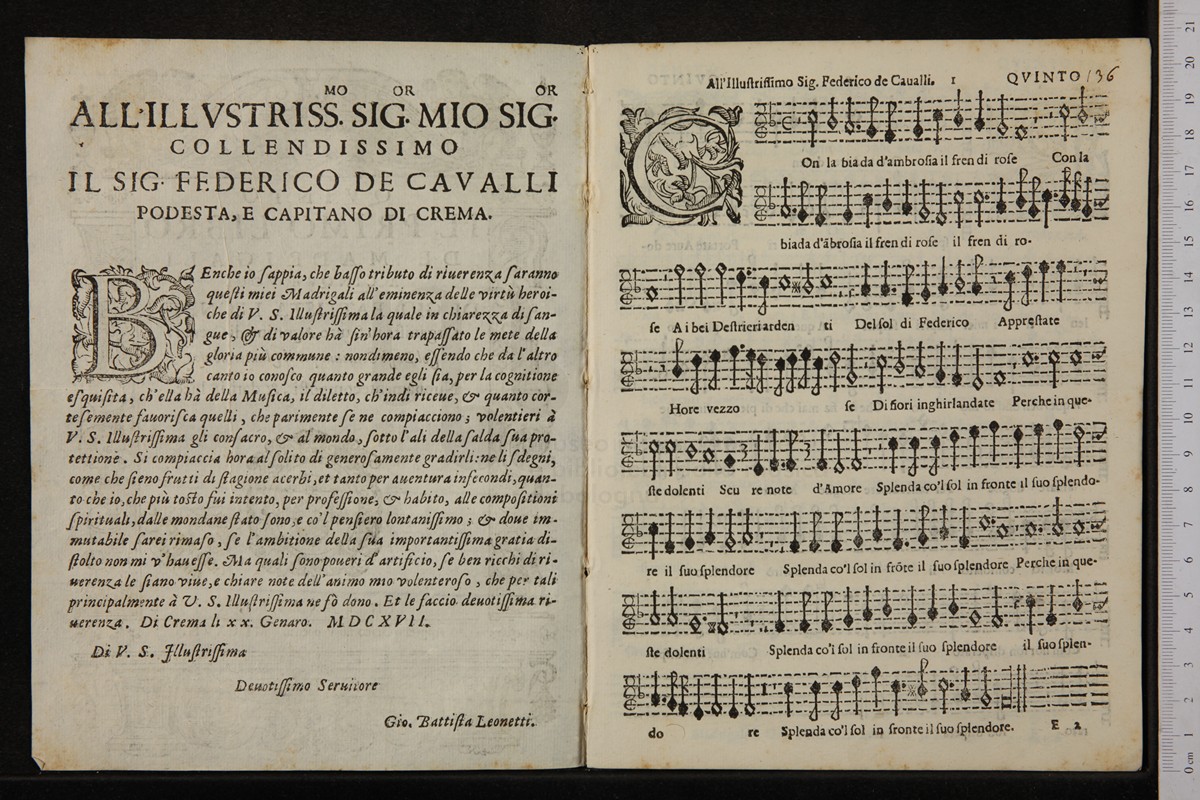 MO OR OR
ALL'ILLVSTRISS. SIG. MIO SIG.
COLLENDISSIMO
IL SIG. FEDERICO DE CAVALLI
PODESTA, E CAPITANO DI CREMA.
BEnche io sappia, che basso tributo di riuerenza saranno
questi miei Madrigali all'eminenza delle virtù heroi-
che di V. S. Illustrissima la quale in chiarezza di san-
gue, & di valore hà sin'hora trapassato le mete della
gloria più commune : nondimeno, essendo che da l'altro
canto io conosco quanto grande egli sia, per la cognitione
esquisita, ch'ella hà della Musica, il diletto, ch'indi riceue, & quanto cor-
tesemente fauorisca quelli, che parimente se ne compiacciono ; volentieri à
V. S. Illustrissima gli consacro, & al mondo, sotto l'ali della salda sua pro-
tettione. Si compiaccia hora al solito di generosamente gradirli: ne li sdegni,
come che sieno frutti di stagione acerbi, et tanto per auentura infecondi, quan-
to che io, che più tosto fui intento, per professione, & habito, alle compositioni
spirituali, dalle mondane stato sono, e co'l pensiero lontanissimo ; & doue im-
mutabile sarei rimaso, se l'ambitione della sua importantissima gratia di-
stolto non mi v'hauesse. Ma quali sono poueri d'artificio, se ben ricchi di ri-
uerenza le siano viue, e chiare note dell'animo mio volenteroso, che per tali
principalmente à V. S. Illustrissima ne fò dono. Et le faccio deuotissima ri-
uerenza. Di Crema li xx. Genaro. MDCXVII.
Di V. S. Illustrissima
Deuotissimo Seruitore
Gio. Battista Leonetti.
All'Illustrissimo Sig. Federico de Caualli. 1 QVINTO 136
COn la biada d'ambrosia il fren di rose Con la
biada d'ābrosia il fren di rose il fren di ro-
se A i bei Destrieri arden ti Del sol di Federico Apprestate
Hore vezzo se Di fiori inghirlandate Perche in que-
ste dolenti Scu re note d'Amore Splenda co'l sol in fronte il suo splendo-
re il suo splendore Splenda co'l sol in frōte il suo splendore Perche in que-
ste dolenti Splenda co'l sol in fronte il suo splendore il suo splen-
do re Splenda co'l sol in fronte il suo splendore. E 2